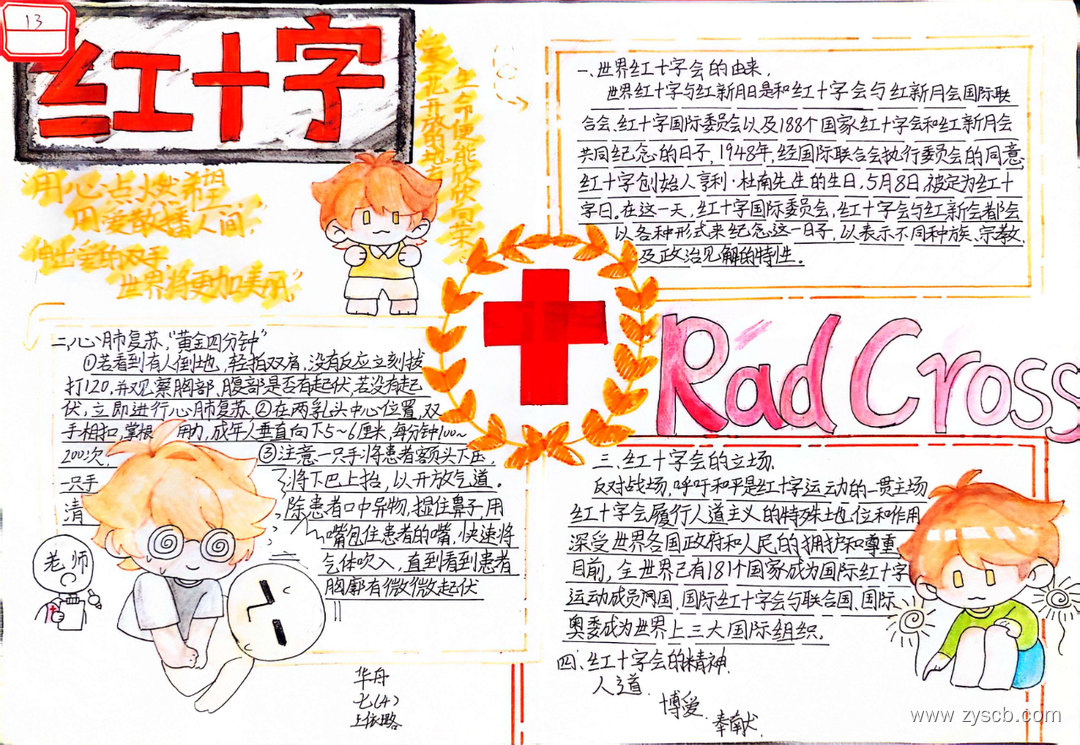 13
红十字
生命便能欣欣向荣
用心点燃希望,
用爱散播人间,
伸出爱的双手
世界将更加美丽,
一、世界红十字会的由来.
世界红十字与红新月日是和红十字会与红新月会国际联
合会、红十字国际委员会以及188个国家红十字会和红新月会
共同纪念的日子,1948年,经国际联合会执行委员会的同意,
红十字创始人亨利·杜南先生的生日,5月8日,被定为红十
字日。在这一天,红十字国际委员会,红十字会与红新会都会
以各种形式来纪念这一日子,以表示不同种族、宗教,
及政治见解的特性。
Rad Cross
二、心肺复苏,“黄金四分钟”
①若看到有人倒地,轻拍双肩,没有反应立刻拔
打120,并观察胸部、腹部是否有起伏,若没有起
伏,立即进行心肺复苏,②在两乳头中心位置,双
手相扣,掌根用力,成年人垂直向下5~6厘米,每分钟100~
200次.
③注意一只手将患者额头下压,
一只手将下巴上抬,以开放气道.
清除患者口中异物,捏住鼻子,用
嘴包住患者的嘴,快速将
气体吹入,直到看到患者
胸廓有微微起伏
老师
三、红十字会的立场.
反对战场,呼吁和平是红十字运动的一贯主场
红十字会履行人道主义的特殊地位和作用
深受世界各国政府和人民的拥护和尊重
目前,全世界已有181个国家成为国际红十字
运动成员国,国际红十字会与联合国、国际
奥委成为世界上三大国际组织.
四、红十字会的精神.
人道.
博爱.
奉献.
华舟
七(4)
www.zyscb.com